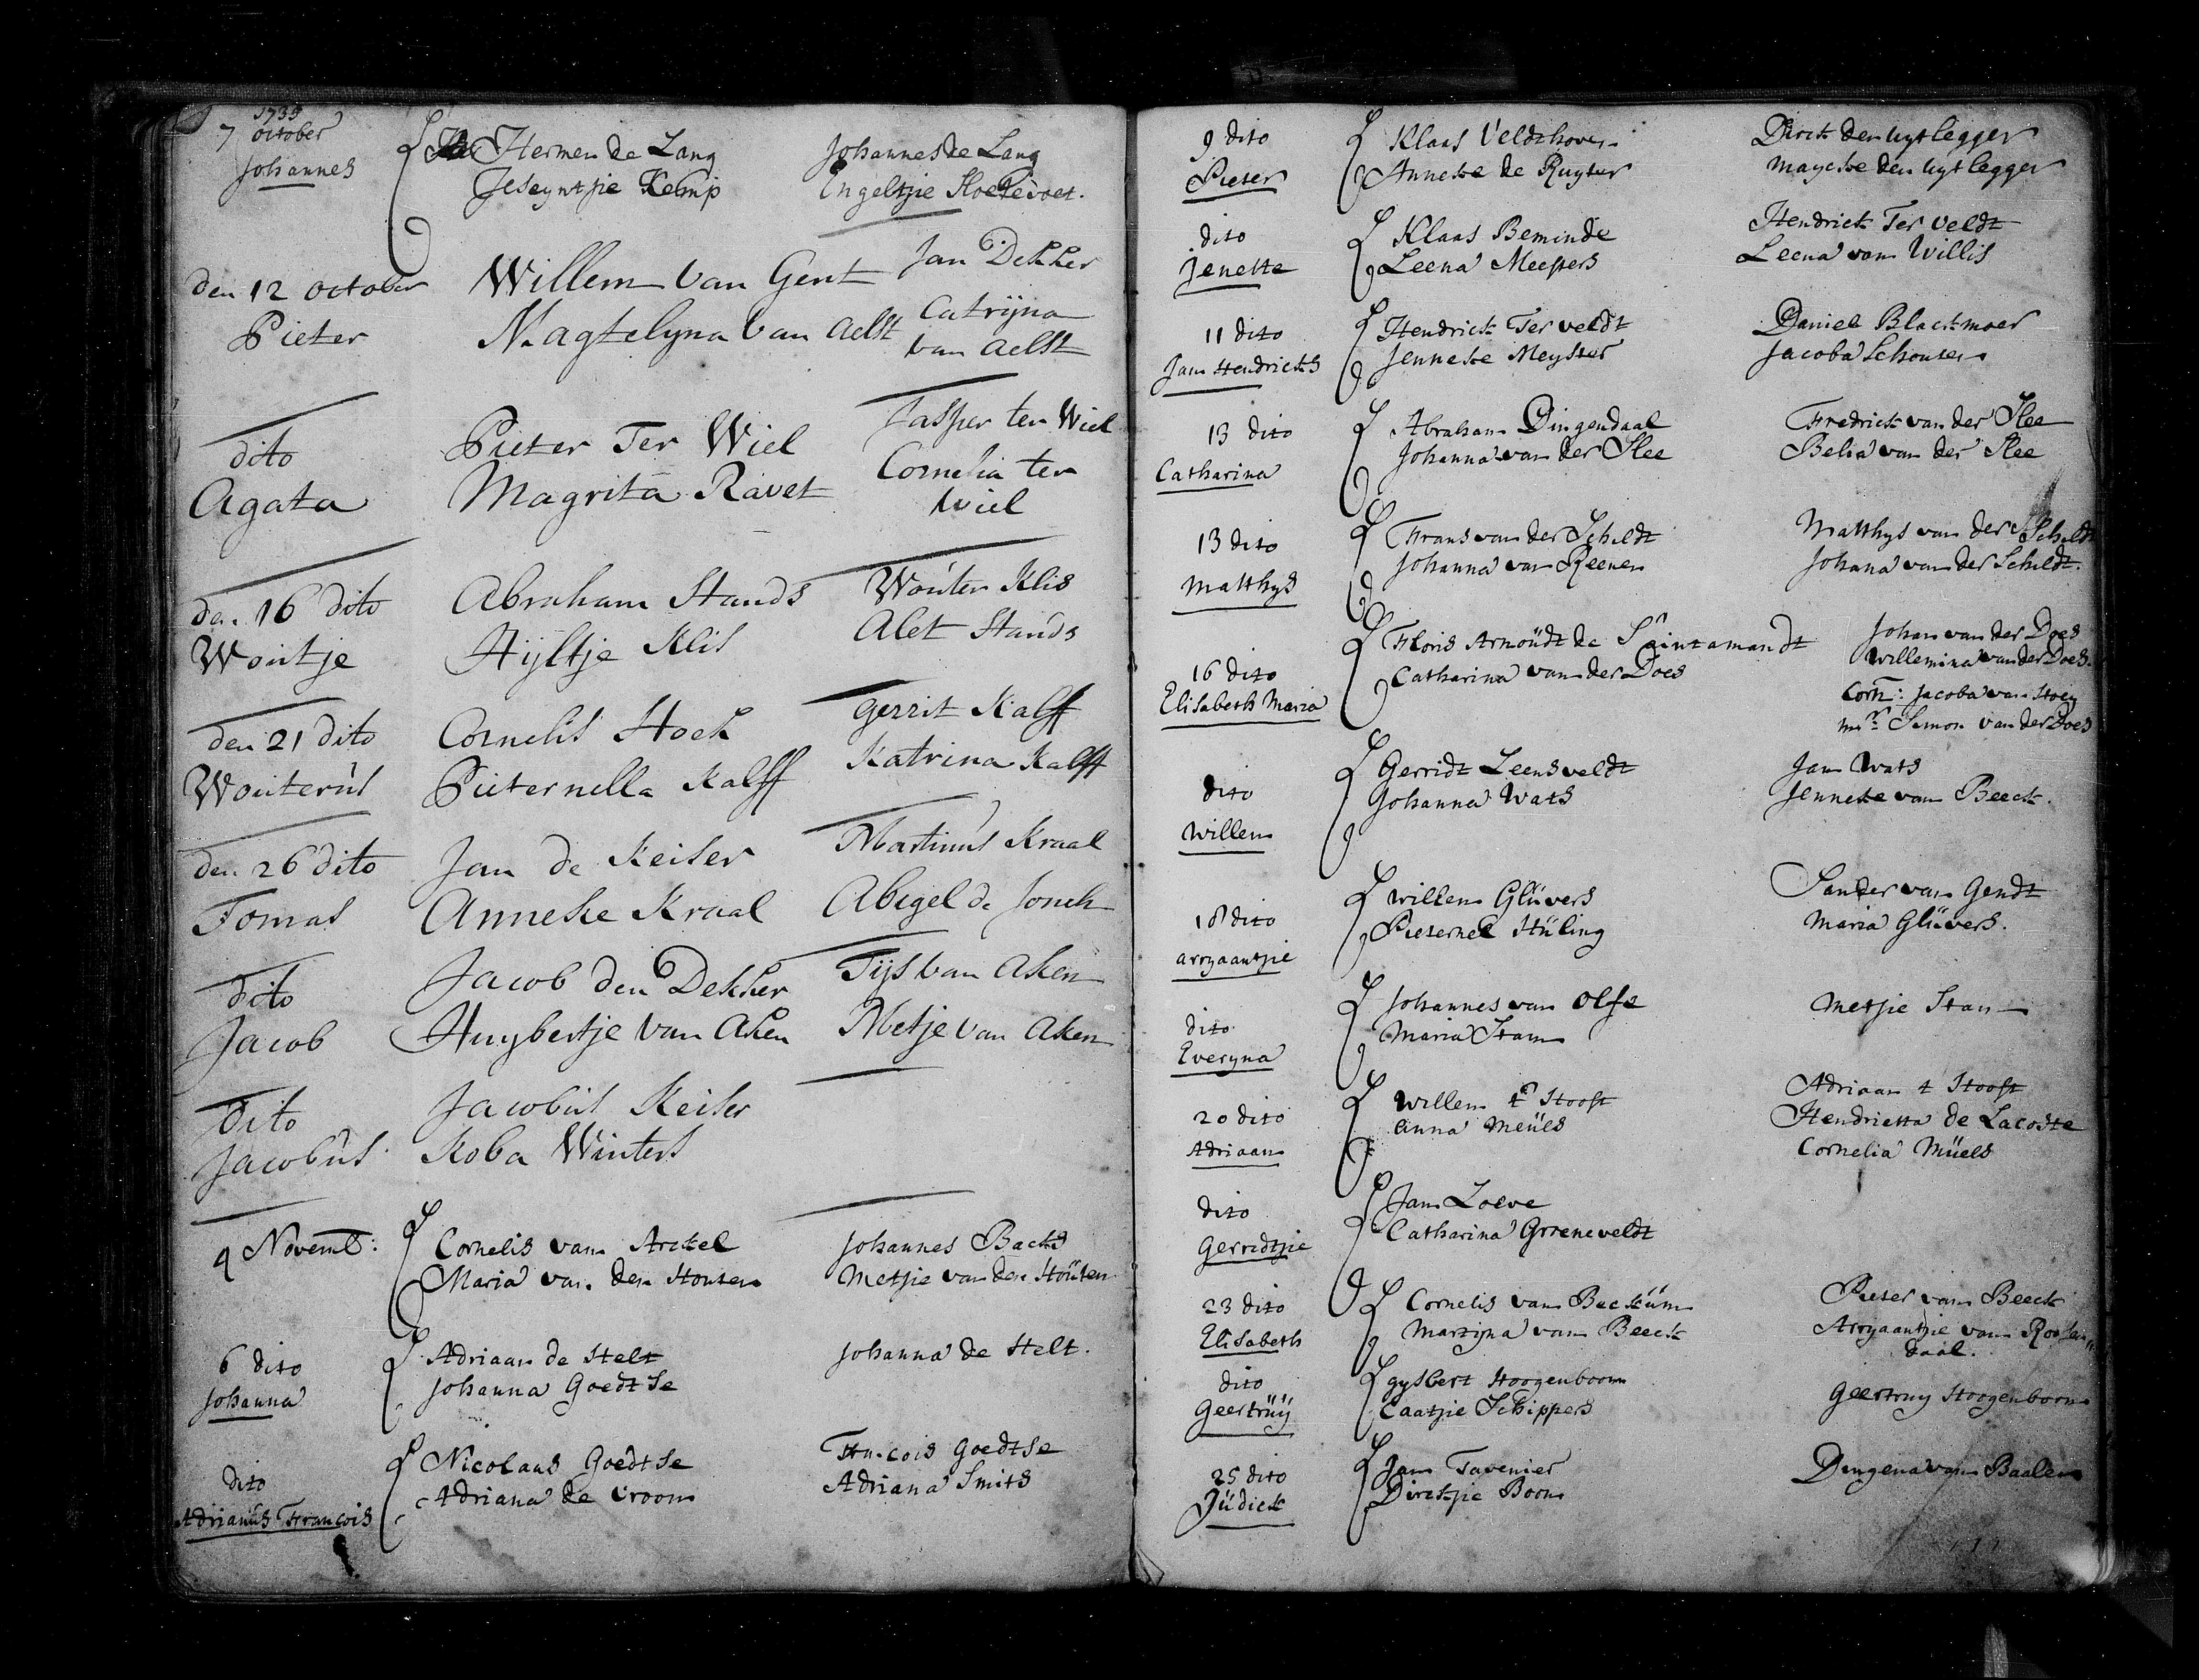 1738
7 october
Johannes
Hermen de Lang
Jeseyntjie Kemp
Johannes de Lang
Engeltjie Hoetevoet.
den 12 october
Pieter
Willem Van Gent
Magtelyna Van Aelst
Jan Dekker
Catrijna
van Aelst
dito
Agata
Pieter Ter Wiel
Magrita Ravet
Jasper ten Wiel
Cornelia ten
Wiel
den 16 dito
Woutje
Abraham Stands
Hijltje Klis
Wouter Klis
Alet Stands
den 21 dito
Wouterus
Cornelis Hoek
Pieternella Kalff
Gerrit Kalff
Katrina Kalff
den 26 dito
Tomas
Jan de Keiser
Anneke Kraal
Martinus Kraal
Abigel de Jonck
dito
Jacob
Jacob den Dekker
Huybertje Van Aken
Tijs Van Aken
Metje Van Aken
dito
Jacobus
Jacobus Keiser
Koba Winters
4 Novemb:
Cornelis van Arckel
Maria van den Houten
Johannes Backs
Metjie van den Houten
6 dito
Johanna
Adriaan de Stelt
Johanna Goedtse
Johanna de Stelt.
dito
Adrianus Francois
Nicolaas Goedtse
Adriana de Vroom
Francois Goedtse
Adriana Smits
9 dito
Pieter
Klaas Veldthoven
Anneke de Ruyter
Dirck den uytlegger
Mayke den uytlegger
dito
Jenette
Klaas Beminde
Leena Meesters
Hendrick Ter Veldt
Leena van Willis
11 dito
Jan Hendricks
Hendrick Ter Veldt
Jenneke Meyster
Daniel Blackmoer
Jacoba Schouten
13 dito
Catharina
Abraham Dingendaal
Johanna van der Slee
Fredrick van der Slee
Belia van der Slee
13 dito
Matthys
Frans van der Schildt
Johanna van Reenen
Matthys van der Schildt
Johana van der Schildt.
16 dito
Elisabeth Maria
Floris Arnoudt de Saintamandt
Catharina van der Does
Johan van der Does
Willemina van der Does.
Corn: Jacoba van Hoey
mr Simon van der Does
dito
Willem
Gerridt Leensveldt
Johanna Wats
Jan Wats
Jenneke van Beeck.
18 dito
arryaantjie
Willem Gluvers
Pieternel Huling
Sander van Gendt
Maria Gluvers.
dito
Everyna
Johannes van Olfe
Maria Stam
Metjie Stam
20 dito
Adriaan
Willem 't Hooft
Anna Meuls
Adriaan t Hooft
Hendrietta de Lacoste
Cornelia Muels
dito
Gerridtjie
Jan Loeve
Catharina Grreneveldt
23 dito
Elisabeth
Cornelis van Beckum
Martijna van Beeck
Pieter van Beeck
Arryaantjie van Roosen"
daal.
dito
Geertruij
Gysbert Hoogenboom
Caatjie Schippers
Geertruy Hoogenboom
25 dito
Judick
Jan Tavenier
Dircktjie Boom
Dingena van Baalen